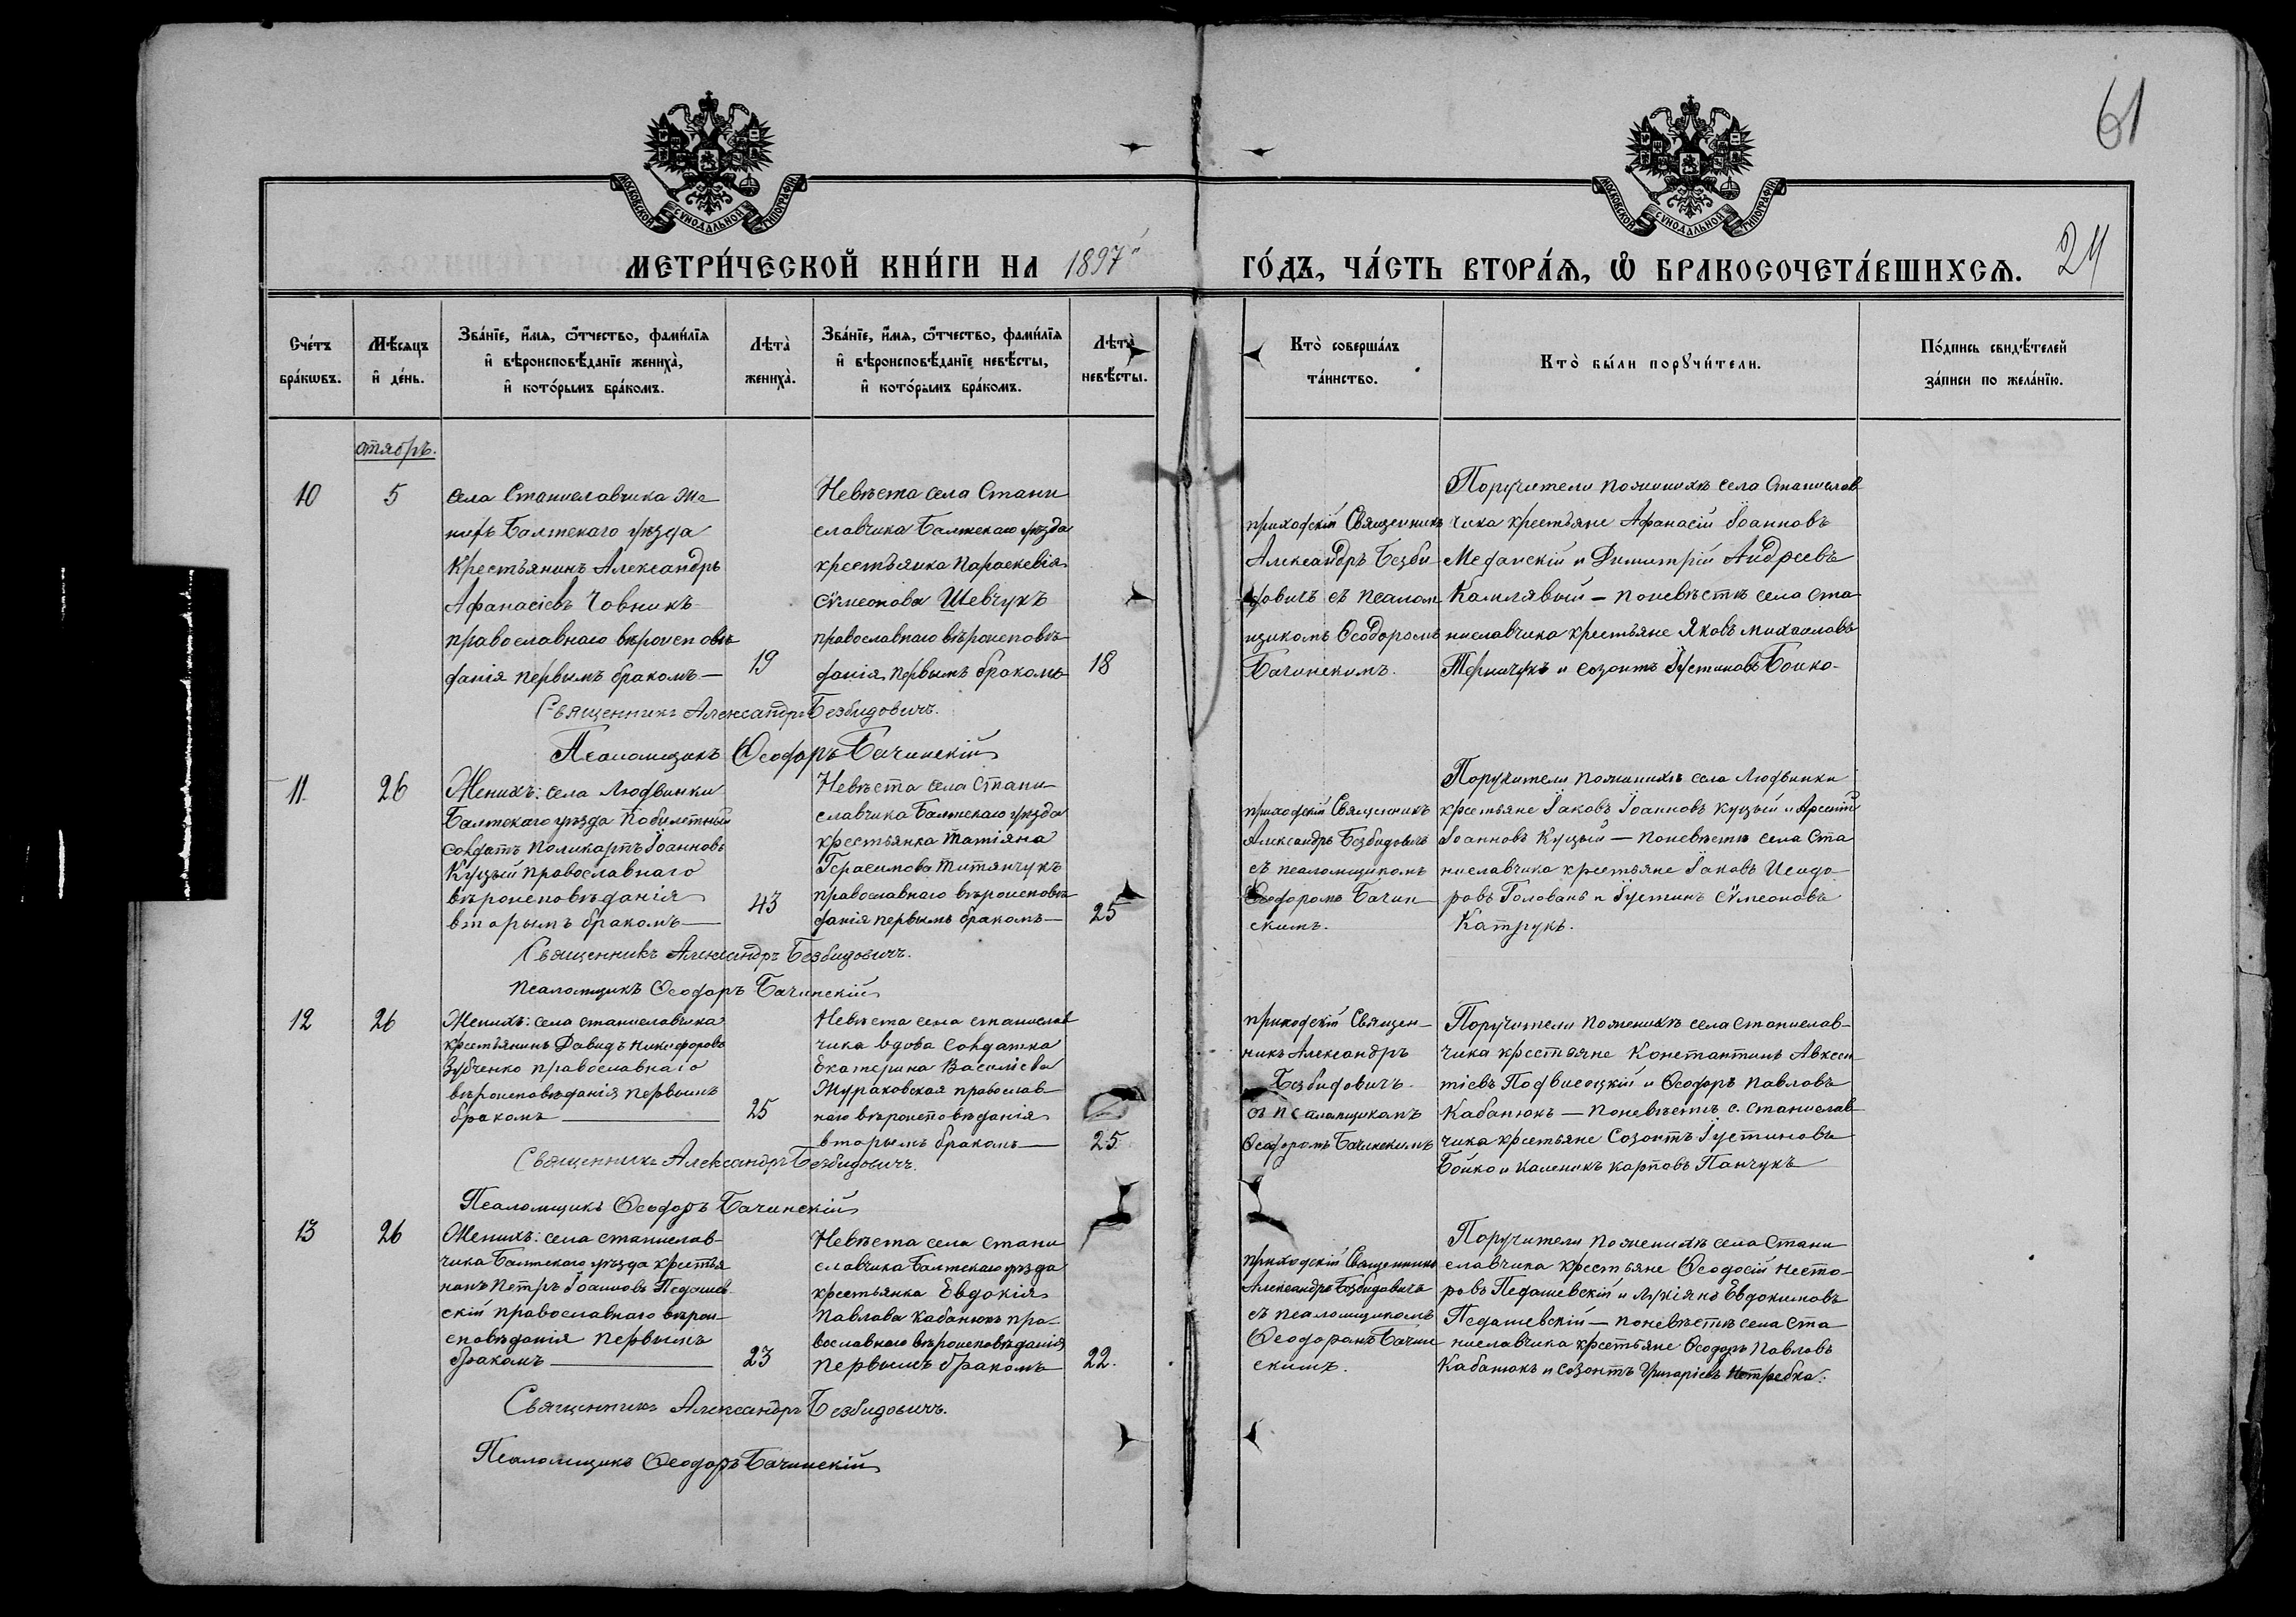 61
МОСКОВСКОЙ СѴНОДАЛЬНОЙ ТИПОГРАФІИ
МОСКОВСКОЙ СѴНОДАЛЬНОЙ ТИПОГРАФІИ
МЕТРИ́ЧЕСКОЙ КНИ́ГИ НА 1897й
ГО́ДЪ, ЧА́СТЬ ВТОРА́Ѧ, Ѡ҆ БРАКОСОЧЕТА́ВШИХСѦ.
24
Сче́тъ
бра́кѡвъ.
Мѣ́сяцъ
и҆ де́нь.
Зва́нїе, и҆́мѧ, ѻ҆́тчество, фами́лїѧ
и҆ вѣроисповѣ́данїе жениха̀,
и҆ кото́рымъ бра́комъ.
Лѣта̀
жениха̀.
Зва́нїе, и҆́мѧ, ѻ҆́тчество, фами́лїѧ
и҆ вѣроисповѣ́данїе невѣ́сты,
и҆ кото́рымъ бра́комъ.
Лѣта̀
невѣ́сты.
Кто̀ соверша́лъ
та́инство.
Кто̀ бы́ли порꙋчи́тели.
По́дпись свидѣ́телей
за́писи по жела́нїю.
отябрь.
10
5
села Станиславчика Же
нихъ Балтскаго уѣзда
Крестьянинъ Александръ
Афанасіевъ Човникъ
православнаго вѣроисповѣ
данія первымъ бракомъ —
19
Невѣста села Стани
славчика Балтскаго уѣзда
крестьянка Параскевія
Сѵмеонова Шевчукъ
православнаго вѣроисповѣ
данія, первымъ бракомъ
18
приходскій Священникъ
Александръ Безби
довичъ съ псалом
щикомъ Ѳеодоромъ
Бачинскимъ.
Поручители по женихѣ села Станислав
чика крестьяне Афанасій Іоанновъ
и Димитрій Андреевъ
— по невѣстѣ села Ста
ниславчика крестьяне Яковъ Михайловъ
и Созонтъ Іустиновъ Бойко
Священникъ Александръ Безбидовичъ.
Псаломщикъ Ѳеодоръ Бачинскій
11.
26
Женихъ: села Людвинки
Балтскаго уѣзда
солдатъ Поликарпъ Іоанновъ
Куцый православнаго
вѣроисповѣданія
вторымъ бракомъ —
43
Невѣста села Стани
славчика Балтскаго уѣзда
крестьянка Татіяна
Герасимова Титянчукъ
православнаго вѣроисповѣ
данія первымъ бракомъ —
25
приходскій Священникъ
Александръ Безбидовичъ
съ псаломщикомъ
Ѳеодоромъ Бачин
скимъ.
Поручители по женихѣ села Людвинки
крестьяне Іаковъ Іоанновъ Куцый и Арсеній
Іоанновъ Куцый — по невѣстѣ села Ста
ниславчика крестьяне Іаковъ Исидо
ровъ Голованъ и Іустинъ Сѵмеоновъ
Катрукъ.
Священникъ Александръ Безбидовичъ.
Псаломщикъ Ѳеодоръ Бачинскій
12
26
Женихъ: села Станиславчика
крестьянинъ Давидъ Никифоровъ
Зубченко православнаго
вѣроисповѣданія первымъ
бракомъ —
25
Невѣста села Станислав
чика вдова солдатка
Екатерина Василіева
Жураковская православ
наго вѣроисповѣданія
вторымъ бракомъ —
25.
приходскій Священ—
никъ Александръ
Безбидовичъ
съ псаломщикомъ
Ѳеодоромъ Бачинскимъ
Поручители по женихѣ села Станислав—
чика крестьяне Константинъ Авксен
тіевъ Подвисоцкій и Ѳеодоръ Павловъ
Кабанюкъ — по невѣстѣ с. Станислав
чика крестьяне Созонтъ Іустиновъ
Бойко и Каленикъ Карповъ Панчукъ
Священникъ Александръ Безбидовичъ.
Псаломщикъ Ѳеодоръ Бачинскій
13
26
Женихъ: села Станислав—
чика Балтскаго уѣзда крестья
нинъ Петръ Іоанновъ Педашев
скій православнаго вѣрои—
сповѣданія первымъ
бракомъ —
23
Невѣста села Стани
славчика Балтскаго уѣзда
крестьянка Евдокія
Павлова Кабанюкъ пра—
вославнаго вѣроисповѣданія
первымъ бракомъ
22.
приходскій Священникъ
Александръ Безбидовичъ
съ псаломщикомъ
Ѳеодоромъ Бачин
скимъ.
Поручители по женихѣ села Стани
славчика крестьяне Ѳеодосій Несто—
ровъ Педашевскій и Лукіянъ Евдокимовъ
Педашевскій — по невѣстѣ села Ста
ниславчика крестьяне Ѳеодоръ Павловъ
Кабанюкъ и Созонтъ Григоріевъ Нетребка.
Священникъ Александръ Безбидовичъ.
Псаломщикъ Ѳеодоръ Бачинскій